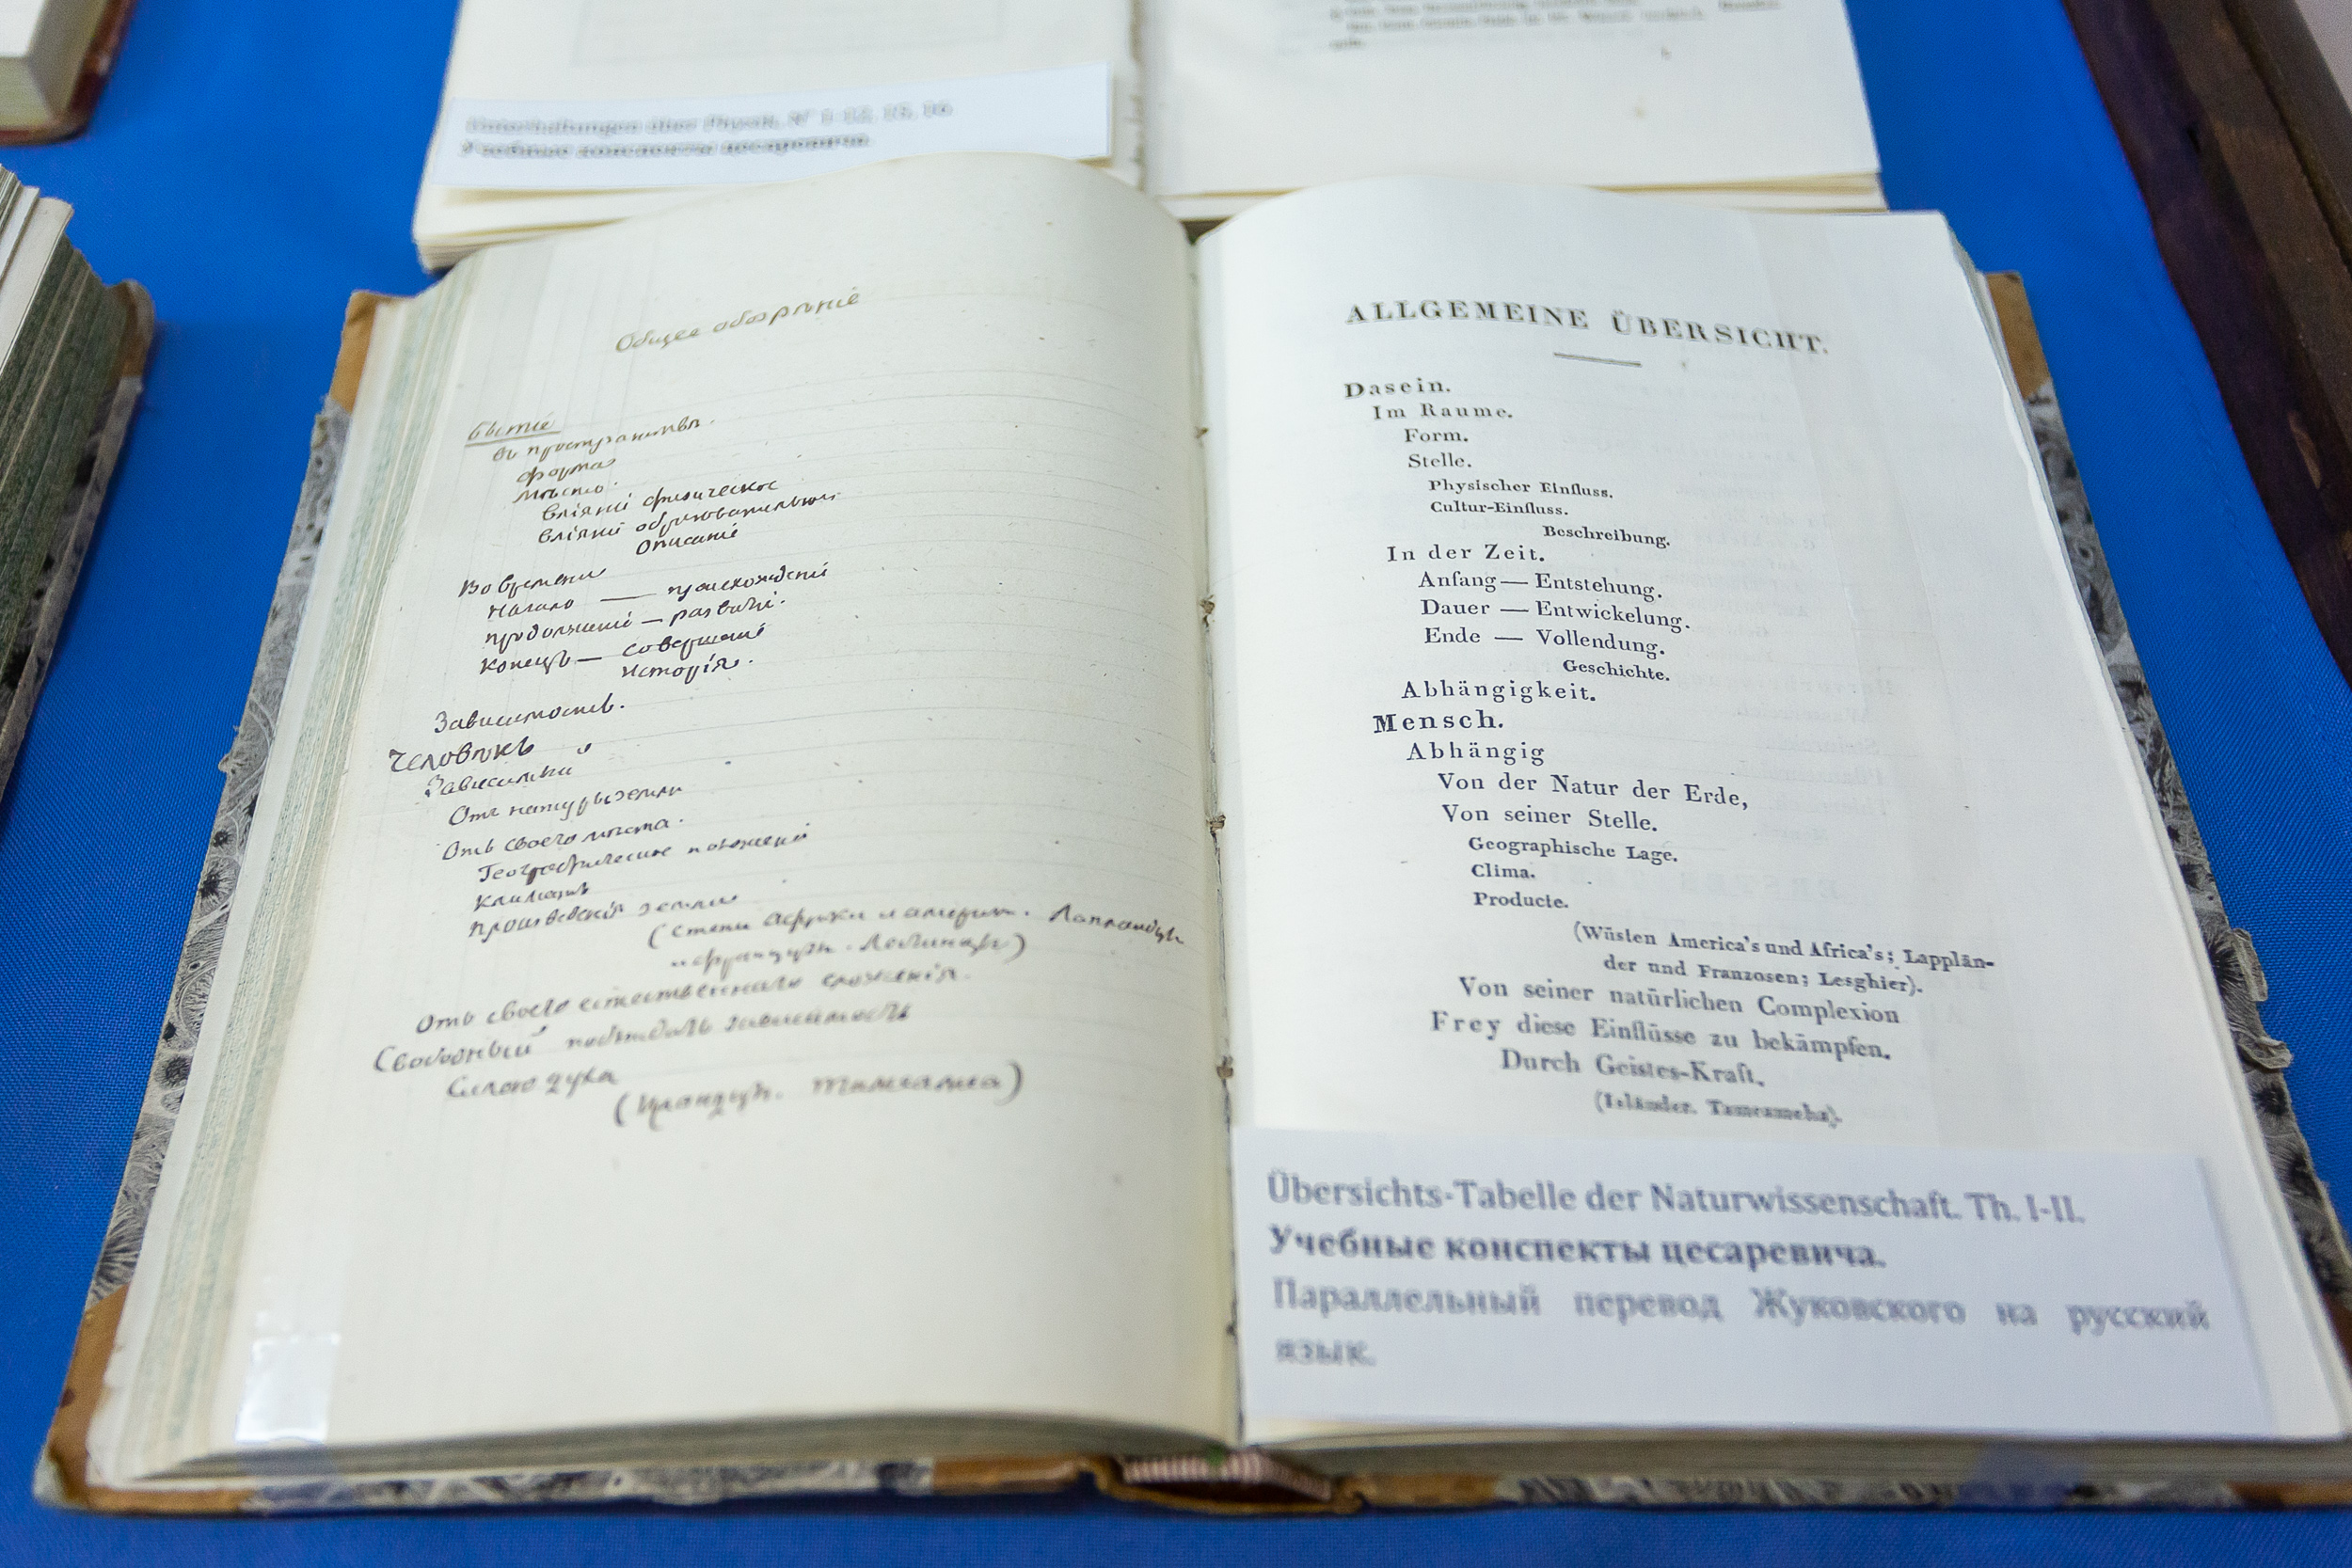 Unterhaltungen über Physik. N° 1-12, 15, 16
Учебные конспекты цесаревича.
Общее обозрѣніе
бытіе
въ пространствѣ.
форма
мѣсто.
вліяніе физическое
вліяніе образовательное
Описаніе
Во времени
Начало — происхожденіе
продолженіе — развитіе.
Конецъ — совершеніе
Исторія.
Зависимость.
Человѣкъ
Зависимый
Отъ натуры земли
Отъ своего мѣста.
Географическое положеніе
Климатъ
произведенія земли
(степи Африки и америк. Лапландцы
и французы. Лезгинцы)
Отъ своего естественнаго сложенія.
Свободный побѣждать зависимость
Силою духа
(Исландцы. Тамеамеа)
ALLGEMEINE ÜBERSICHT.
Dasein.
Im Raume.
Form.
Stelle.
Physischer Einfluss.
Cultur-Einfluss.
Beschreibung.
In der Zeit.
Anfang — Entstehung.
Dauer — Entwickelung.
Ende — Vollendung.
Geschichte.
Abhängigkeit.
Mensch.
Abhängig
Von der Natur der Erde,
Von seiner Stelle.
Geographische Lage.
Clima.
Producte.
(Wüsten America's und Africa's; Lapplän-
der und Franzosen; Lesghier).
Von seiner natürlichen Complexion
Frey diese Einflüsse zu bekämpfen.
Durch Geistes-Kraft.
(Isländer. Tameameha).
Übersichts-Tabelle der Naturwissenschaft. Th. I-II.
Учебные конспекты цесаревича.
Параллельный перевод Жуковского на русский
язык.